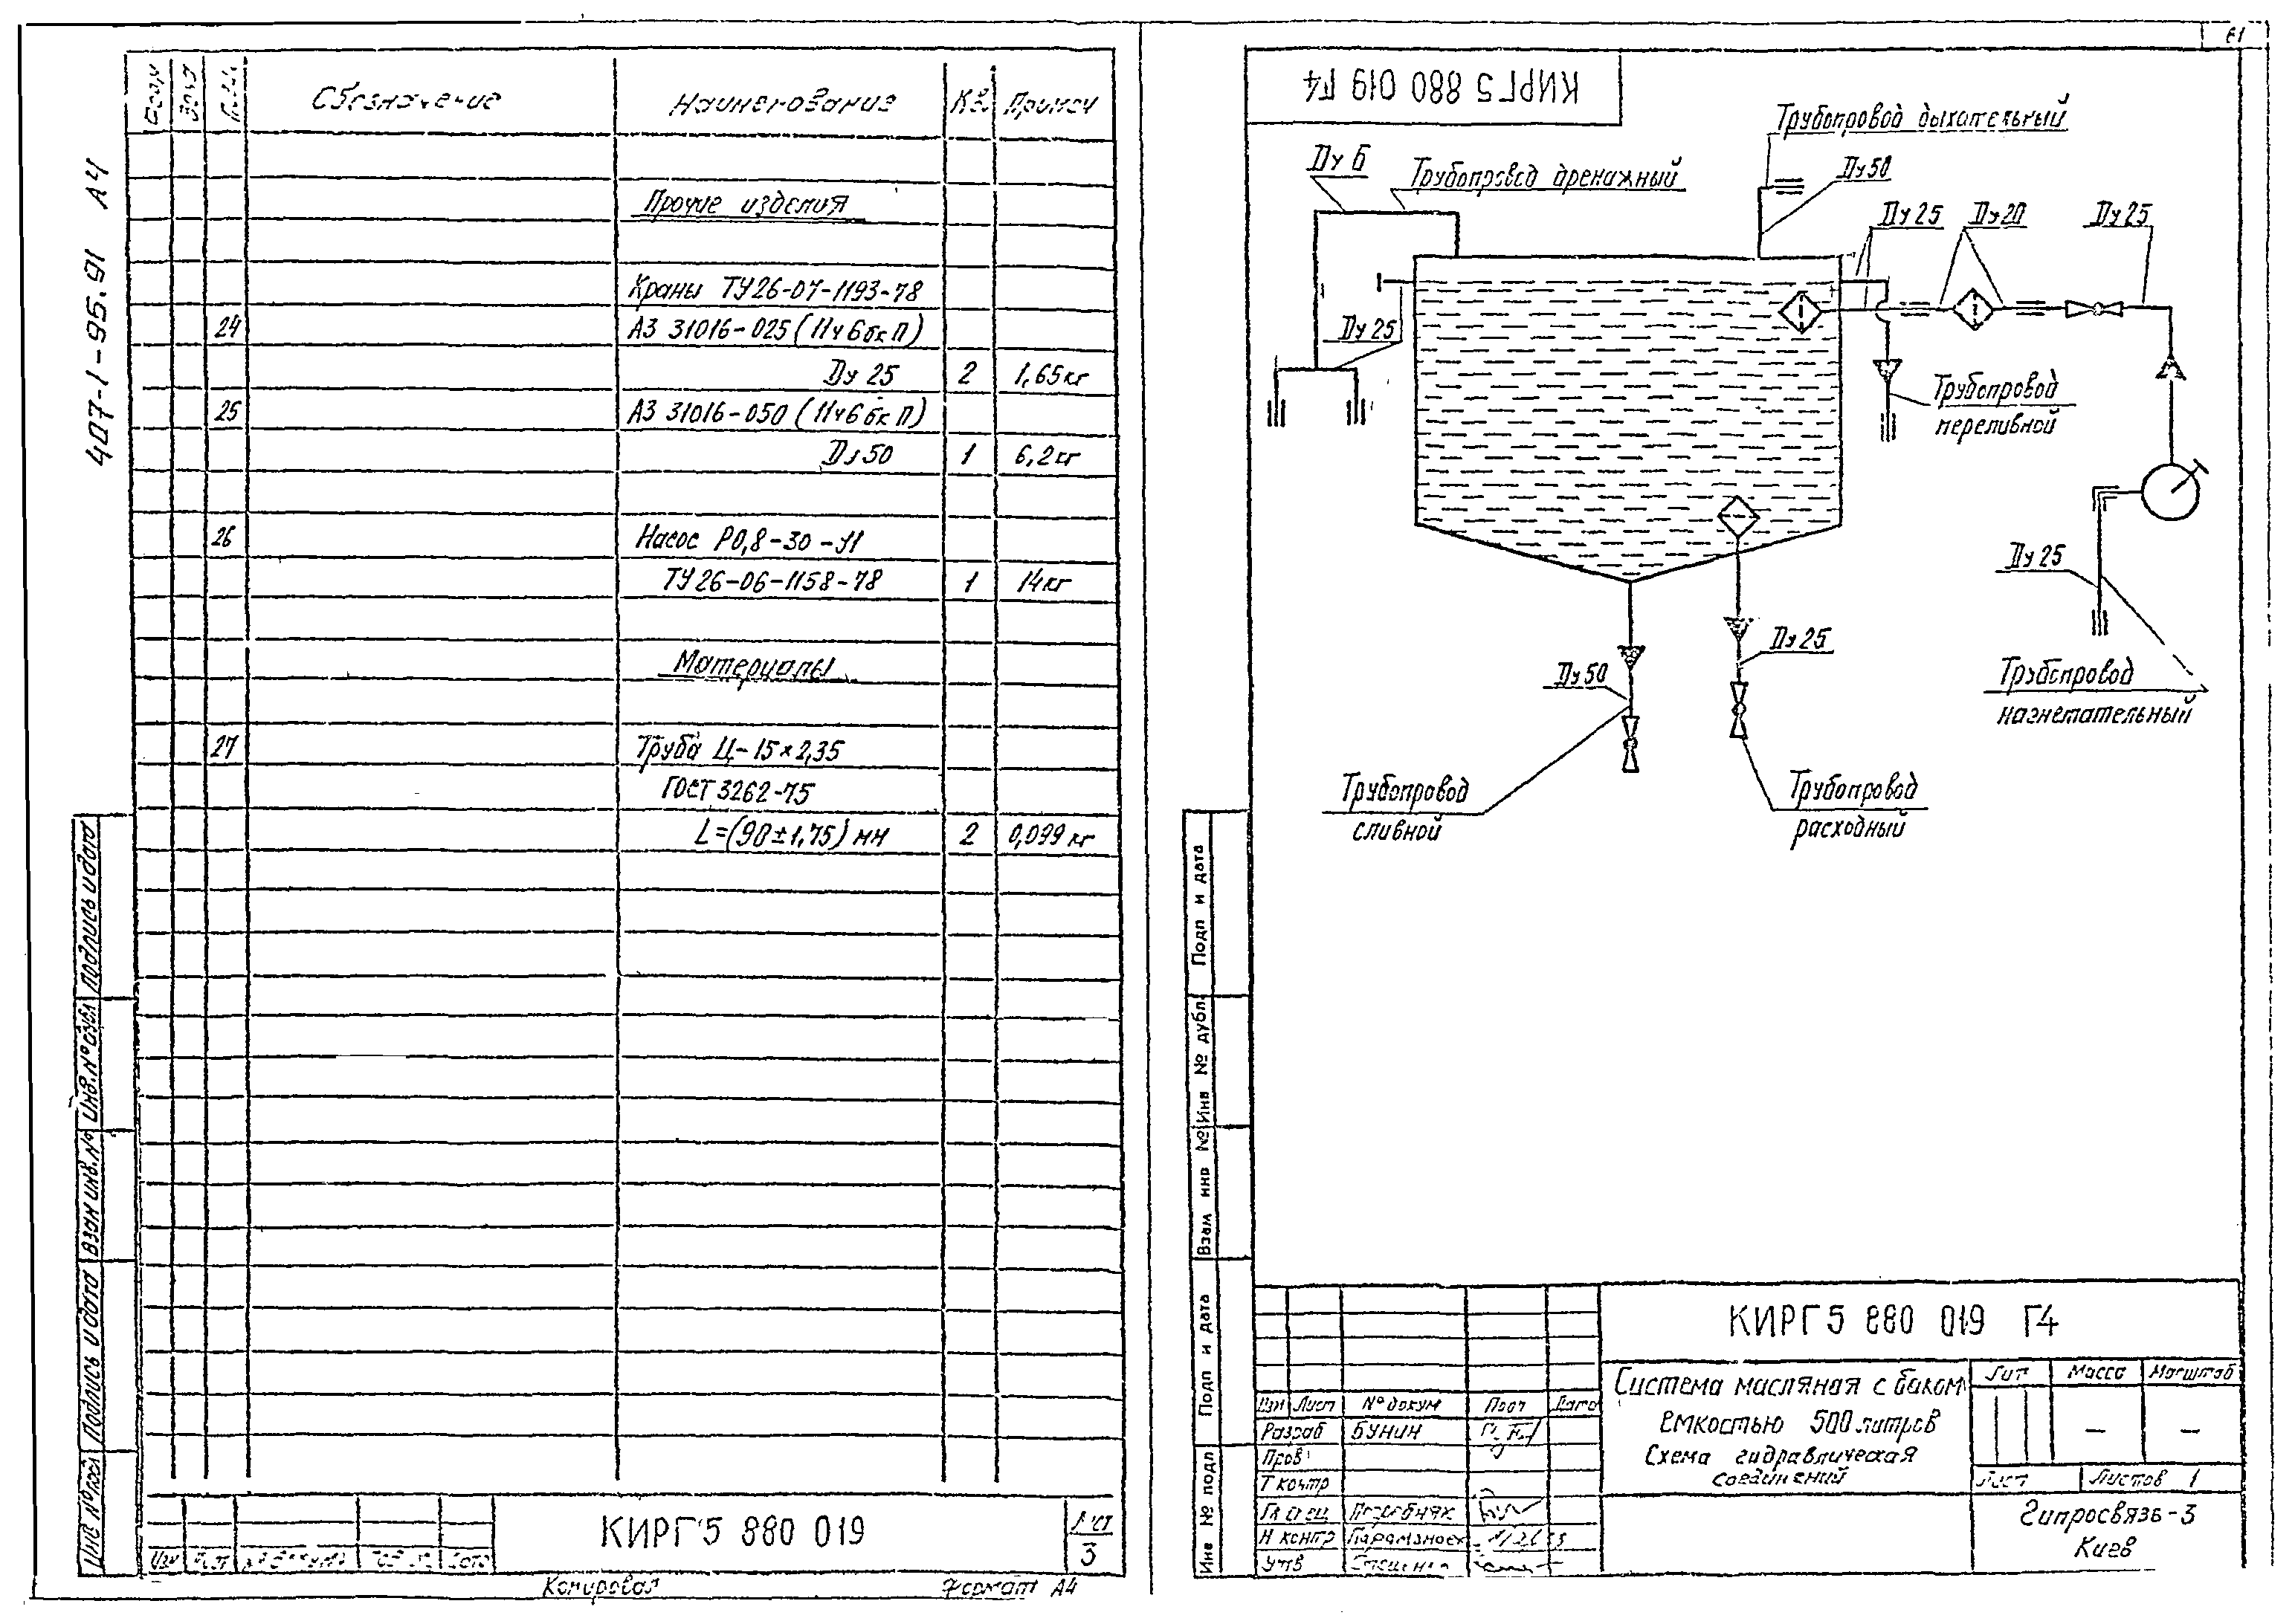 61
407-1-95.91 А4
Обозначение Наименование Кол Примеч
Прочие изделия
Краны ТУ26-07-1193-78
24 А3 31016-025 (11ч6бк П)
Ду 25 2 1,65кг
25 А3 31016-050 (11ч6бк П)
Ду 50 1 6,2кг
26 Насос Р0,8-30-У1
ТУ26-06-1158-78 1 14кг
Материалы
27 Труба Ц-15×2,35
ГОСТ 3262-75
L=(90±1,75) мм 2 0,099 кг
Подпись и дата
Инв.№ дубл
Взам инв.№
Подпись и дата
Инв № подл
Изм Лист
КИРГ5 880 019
Лист
3
Копировал Формат А4
КИРГ5 880 019 Г4
Трубопровод дыхательный
Ду 6
Трубопровод дренажный
Ду50
Ду 25
Ду20
Ду 25
Ду 25
Трубопровод
переливной
Ду 25
Ду 25
Ду50
Трубопровод
нагнетательный
Трубопровод
сливной
Трубопровод
расходный
Подп и дата
Инв № дубл.
Взам инв №
Подп и дата
Инв № подл
КИРГ5 880 019 Г4
Система масляная с баком
емкостью 500 литров
Схема гидравлическая
соединений
Лит Масса Масштаб
– –
Лист Листов 1
Изм Лист № докум Подп Дата
Разраб БУНИН
Пров
Т контр
Гл спец
Н контр
Утв
Гипросвязь-3
Киев